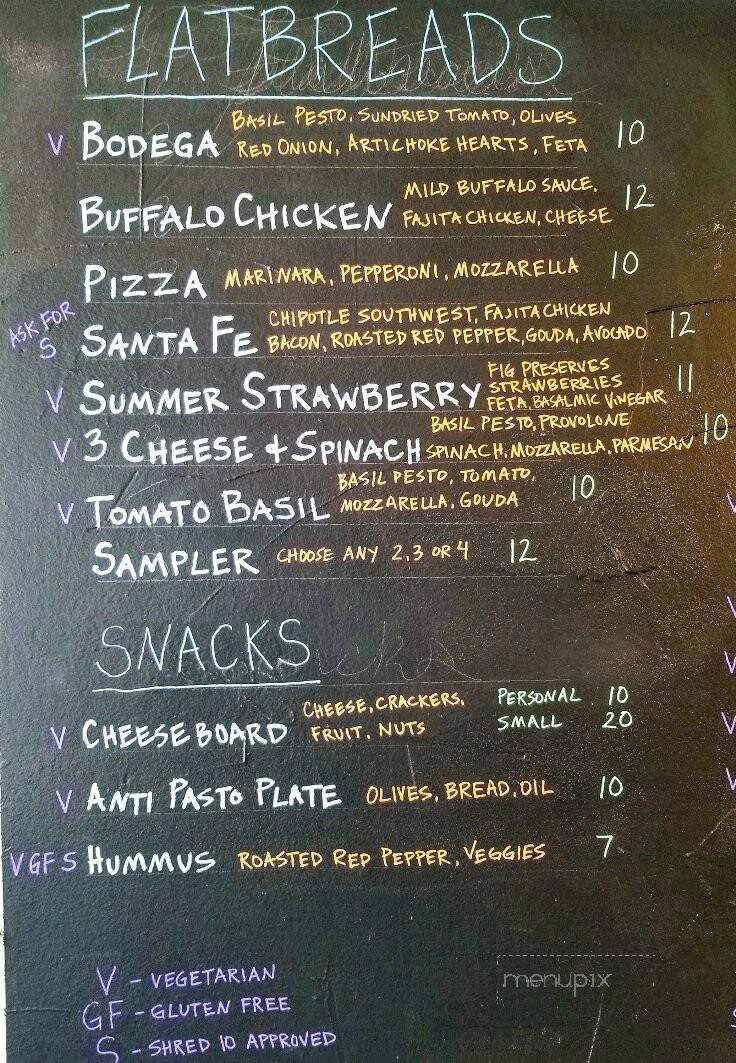 FLATBREADS
V BODEGA BASIL PESTO, SUNDRIED TOMATO, OLIVES
RED ONION, ARTICHOKE HEARTS, FETA 10
BUFFALO CHICKEN MILD BUFFALO SAUCE,
FAJITA CHICKEN, CHEESE 12
PIZZA MARINARA, PEPPERONI, MOZZARELLA 10
ASK FOR
S SANTA FE CHIPOTLE SOUTHWEST, FAJITA CHICKEN
BACON, ROASTED RED PEPPER, GOUDA, AVOCADO 12
V SUMMER STRAWBERRY FIG PRESERVES
STRAWBERRIES
FETA, BASALMIC VINEGAR 11
V 3 CHEESE & SPINACH BASIL PESTO, PROVOLONE
SPINACH, MOZZARELLA, PARMESAN 10
V TOMATO BASIL BASIL PESTO, TOMATO,
MOZZARELLA, GOUDA 10
SAMPLER CHOOSE ANY 2, 3 OR 4 12
SNACKS
V CHEESE BOARD CHEESE, CRACKERS, PERSONAL 10
FRUIT, NUTS SMALL 20
V ANTI PASTO PLATE OLIVES, BREAD, OIL 10
V GF S HUMMUS ROASTED RED PEPPER, VEGGIES 7
V - VEGETARIAN
GF - GLUTEN FREE
S - SHRED 10 APPROVED
menupix